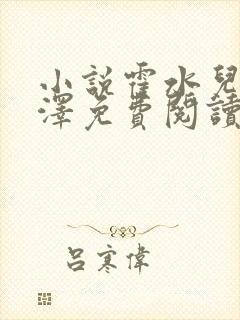 小說霍水兒
澤免費閱讀
呂寒偉